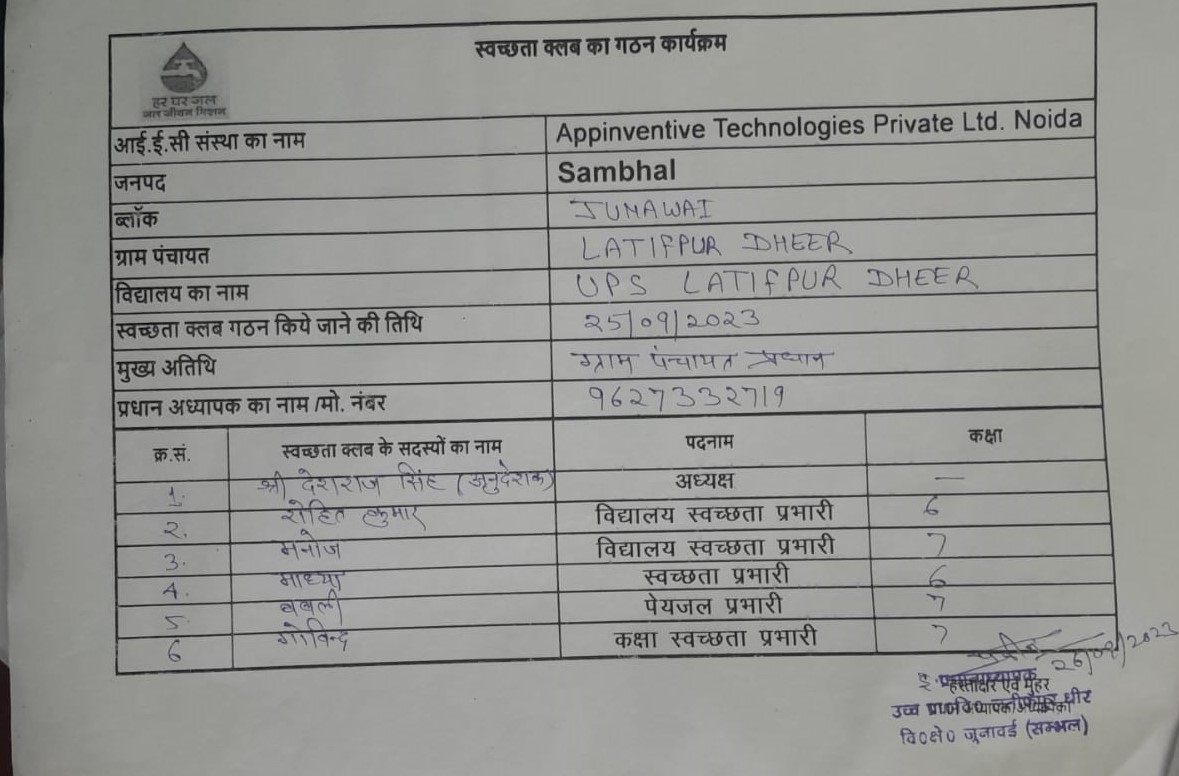 स्वच्छता क्लब का गठन कार्यक्रम
हर घर जल
जल जीवन मिशन
आई.ई.सी संस्था का नाम Appinventive Technologies Private Ltd. Noida
जनपद Sambhal
ब्लॉक JUNAWAI
ग्राम पंचायत LATIFPUR DHEER
विद्यालय का नाम UPS LATIFPUR DHEER
स्वच्छता क्लब गठन किये जाने की तिथि 25/09/2023
मुख्य अतिथि ग्राम पंचायत प्रधान
प्रधान अध्यापक का नाम /मो. नंबर 9627332719
क्र.सं. स्वच्छता क्लब के सदस्यों का नाम पदनाम कक्षा
1. श्री देशराज सिंह (अनुदेशक) अध्यक्ष —
2. रोहित कुमार विद्यालय स्वच्छता प्रभारी 6
3. मनोज विद्यालय स्वच्छता प्रभारी 7
4. माध्या स्वच्छता प्रभारी 6
5. बबली पेयजल प्रभारी 7
6 गोविन्द कक्षा स्वच्छता प्रभारी 7
हस्ताक्षर एवं मुहर
उच्च धीर
वि०क्षे० जूनावई (सम्भल)